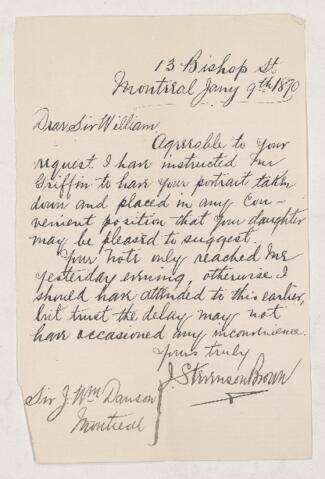 13 Bishop St.
Montreal Jany 9th 1890
Dear Sir William
Agreeable to your
request I have instructed Mr
Griffin to have your portrait taken
down and placed in any con-
venient position that your daughter
may be pleased to suggest.
Your note only reached me
yesterday evening, otherwise I
should have attended to this earlier,
but trust the delay may not
have occasioned any inconvenience.
Yours truly
J. Stevenson Brown
Sir J. Wm Dawson
Montreal